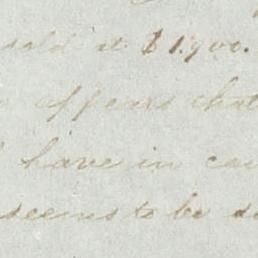 sold at $1.900.
appears that
have in
seems to be